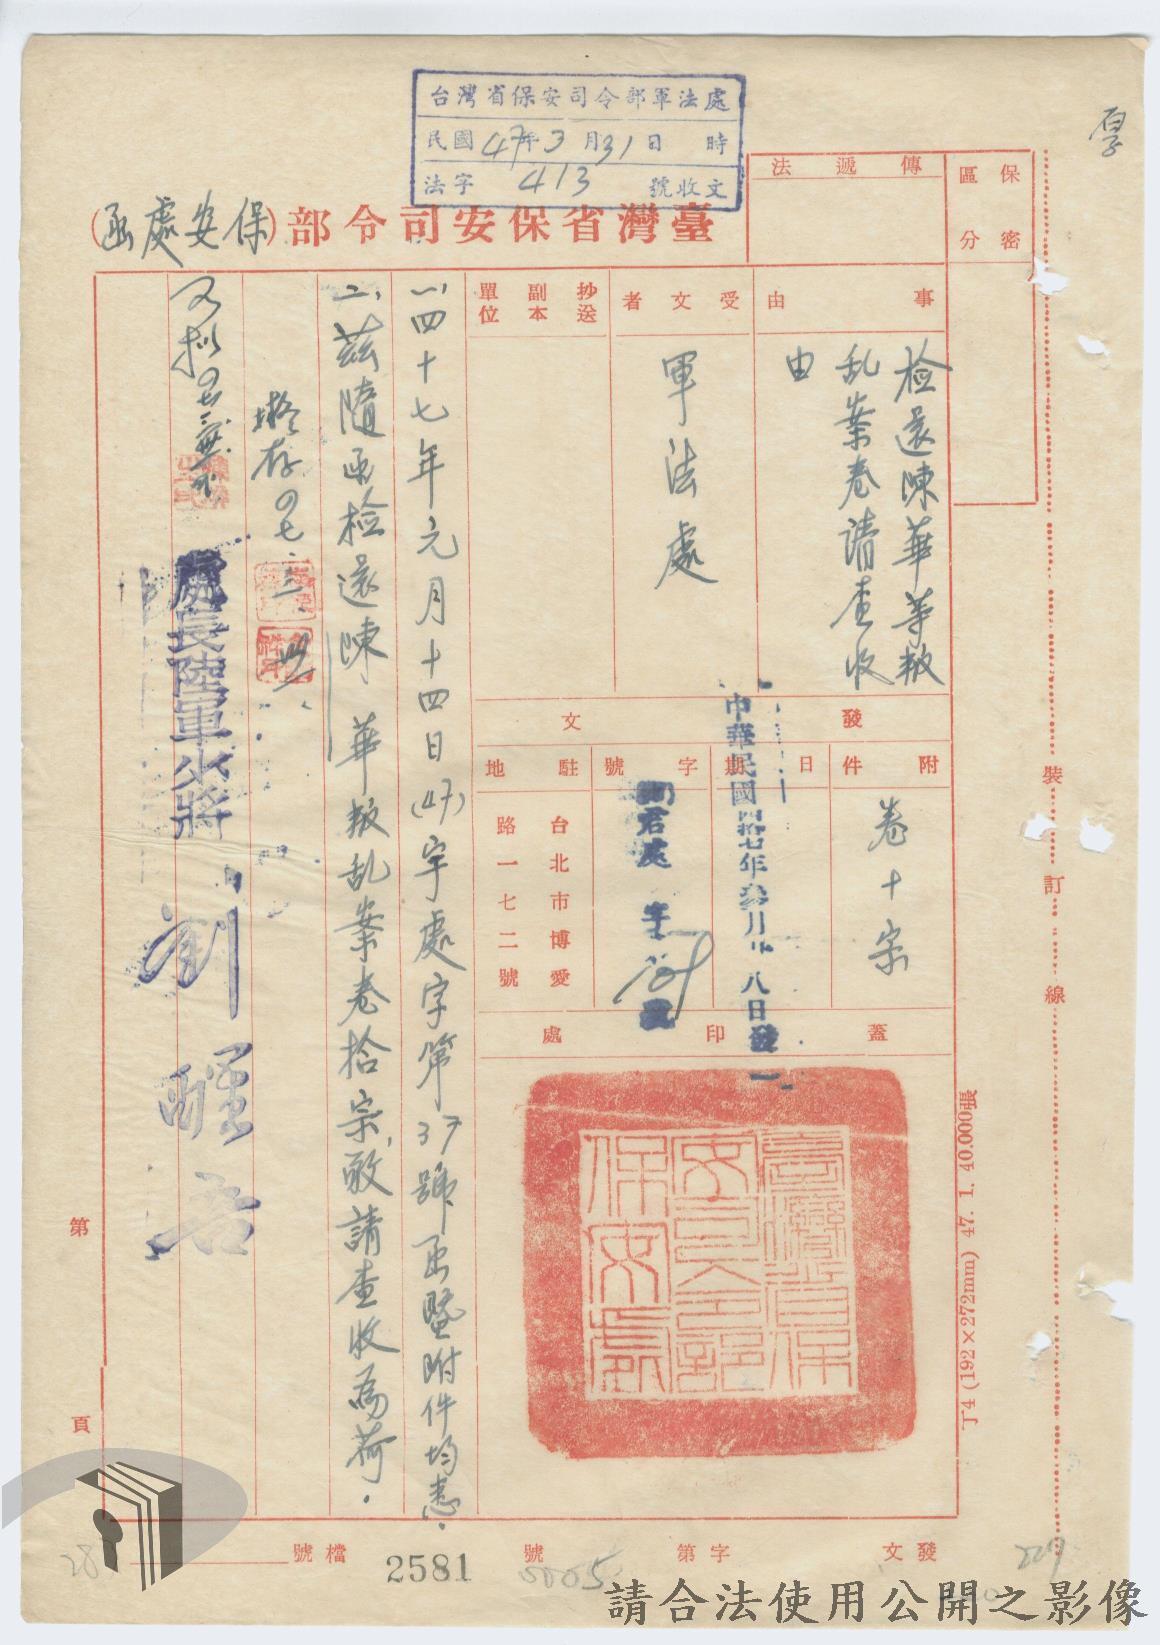 台灣省保安司令部軍法處
民國47年3月31日 時
法字 413 號收文
臺灣省保安司令部(保安處函)
保密
區分
傳遞法
事由
檢還陳華等叛
乱案卷請查收
由
受文者
軍法處
抄送
副本
單位
發文
附件
卷十宗
日期
中華民國四拾七年叁月廿八日發
字號
駐地
台北市博愛
路一七二號
蓋印處
臺灣省保
安司令部
保安處
一、四十七年元月十四日(47)字處字第37號函暨附件均悉.
二、茲隨函檢還陳華叛乱案卷拾宗,敬請查收為荷.
擬存
處長陸軍少將劉醒吾
裝訂線
丁4 (192×272mm) 47. 1. 40.000張
第 頁
發文 字第 號
檔號
2581
請合法使用公開之影像